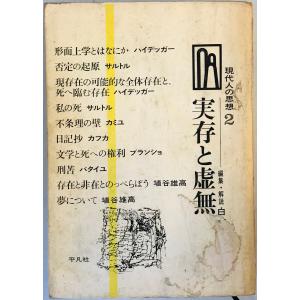 現代人の思想2
実存と虚無
編集・解説 白
形而上学とはなにか ハイデッガー
否定の起原 サルトル
現存在の可能的な全体存在と、
死へ臨む存在 ハイデッガー
私の死 サルトル
不条理の壁 カミユ
日記抄 カフカ
文学と死への権利 ブランショ
刑苦 バタイユ
存在と非在とのっぺらぼう 埴谷雄高
夢について 埴谷雄高
平凡社